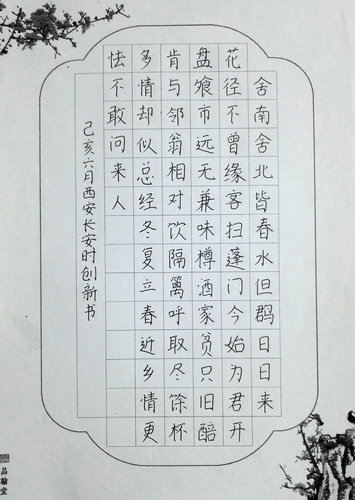 舍南舍北皆春水但群日日来
花径不曾缘客扫蓬门今始为君开
盘飧市远无兼味樽酒家贫只旧醅
肯与邻翁相对饮隔篱呼取尽馀杯
多情却似总经冬复立春近乡情更
怯不敢问来人
己亥六月西安长安时创新书
品翰堂